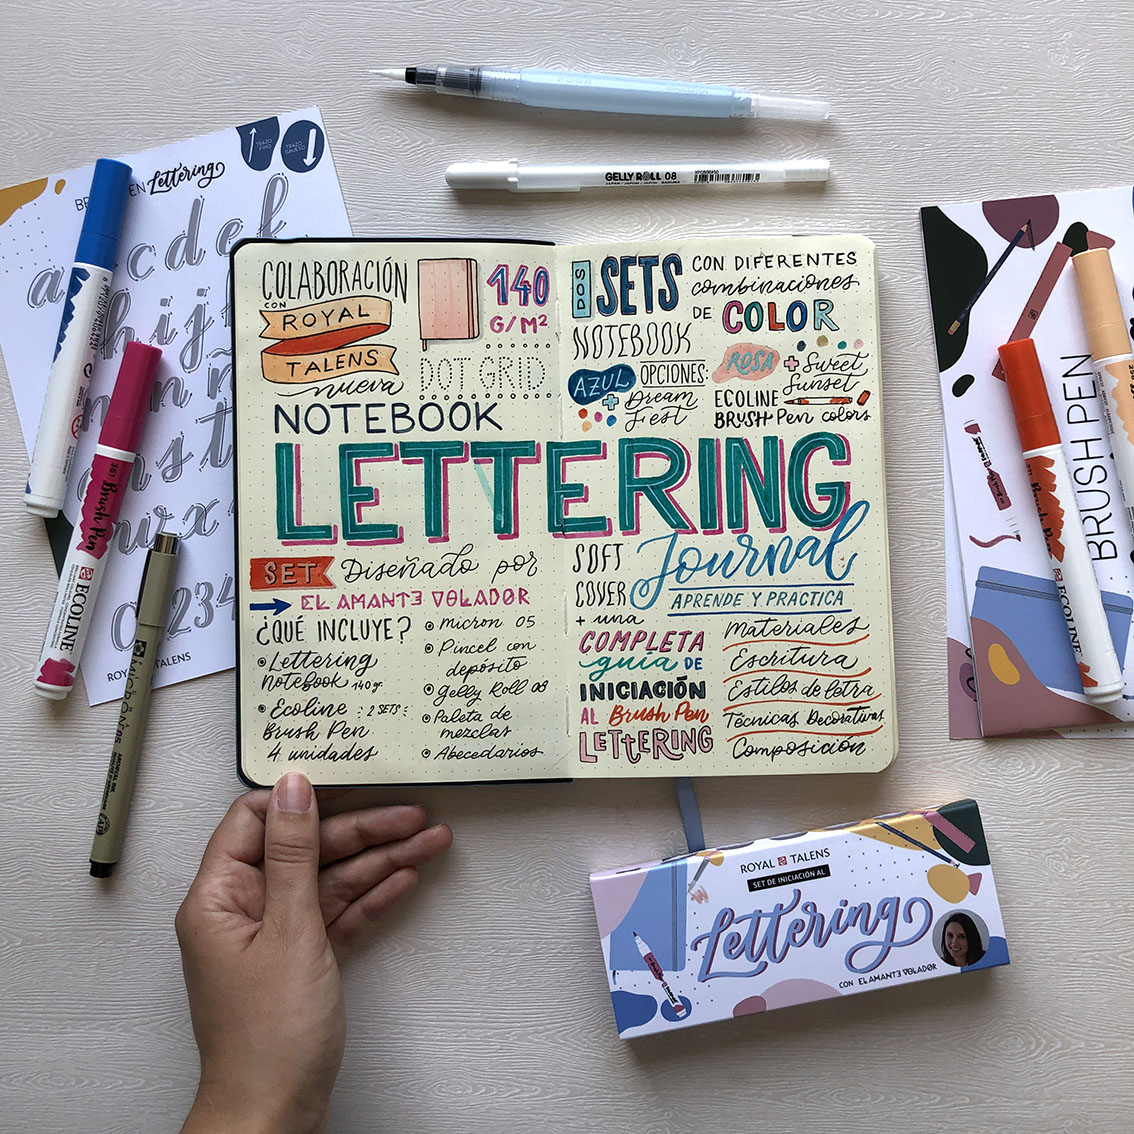 GELLY ROLL 08
JAPAN / JAPON / JAPÓN SAKURA
XPGB08#50
TRAZO
FINO
TRAZO
GRUESO
EN Lettering
a c d e f
h i j
0 2 3 4
ROYAL TALENS
361 Brush Pen
ECOLINE
MICRON 05
ARCHIVAL INK
COLABORACIÓN
CON
ROYAL
TALENS
nueva
NOTEBOOK
140
G/M²
DOT GRID
DOS SETS
CON DIFERENTES
combinaciones
DE COLOR
NOTEBOOK
OPCIONES:
AZUL
+ Dream
Fest
ROSA
+ Sweet
Sunset
ECOLINE
BRUSH Pen colors
LETTERING
Journal
APRENDE Y PRACTICA
SET Diseñado por
EL AMANTE VOLADOR
¿QUÉ INCLUYE?
Lettering
Notebook 140 gr.
Ecoline : 2 SETS :
Brush Pen
4 unidades
micron 05
Pincel con
depósito
Gelly Roll 08
Paleta de
mezclas
Abecedarios
SOFT
COVER
+ una
COMPLETA
guía DE
INICIACIÓN
AL Brush Pen
LETTERING
Materiales
Escritura
Estilos de letra
Técnicas Decorativas
Composición
BRUSH PEN
Brush Pen
ECOLINE
ROYAL TALENS
SET DE INICIACIÓN AL
Lettering
CON EL AMANTE VOLADOR